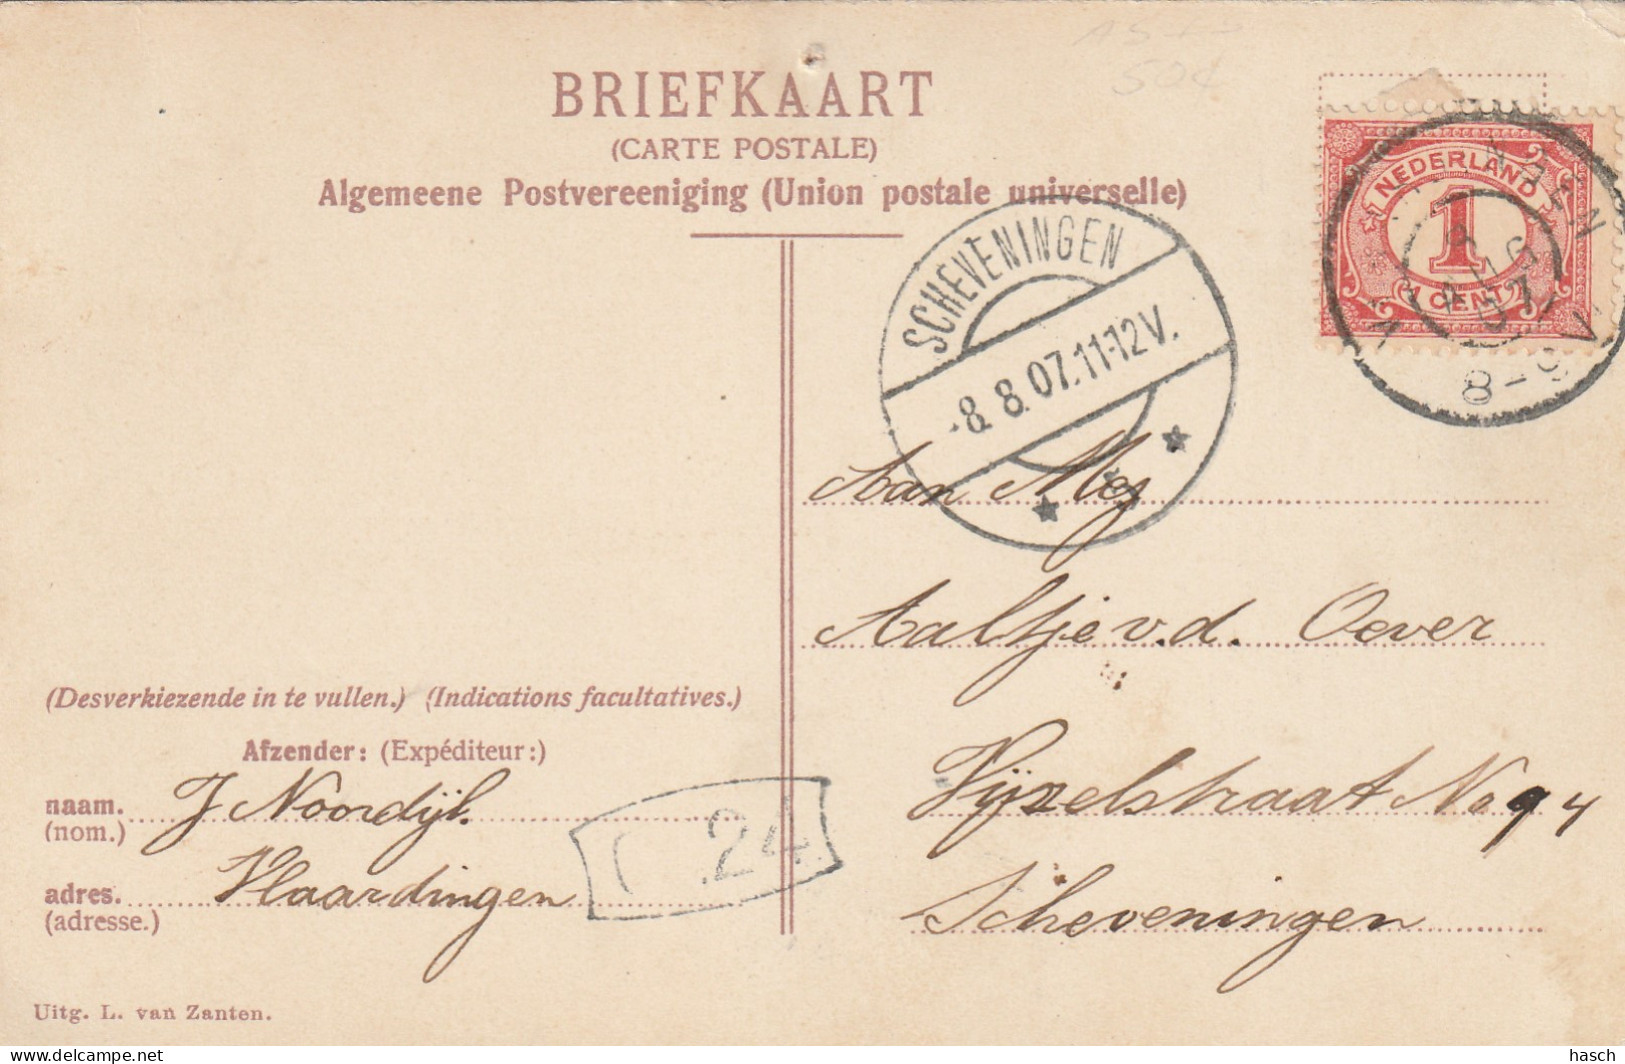 BRIEFKAART
(CARTE POSTALE)
Algemeene Postvereeniging (Union postale universelle)
NEDERLAND
1
1 CENT
8-9V
SCHEVENINGEN
-8. 8. 07. 11-12V.
Aan Mej
Aaltje v.d. Oever
Vijzelstraat No 94
Scheveningen
(Desverkiezende in te vullen.) (Indications facultatives.)
Afzender: (Expéditeur:)
naam. J Noordijl.
(nom.)
adres. Vlaardingen
(adresse.)
24
Uitg. L. van Zanten.
hasch